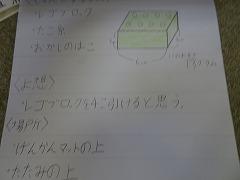 レゴブロック
たこ糸
おかしのはこ
<予想>
レゴブロックを4こ引けると思う。
<場所>
げんかんマットの上
たたみの上